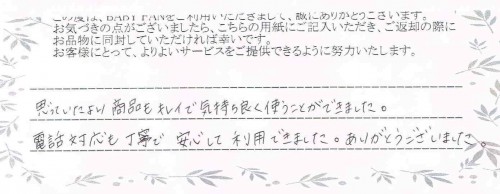 この度は、BABY FANをご利用いただきまして、誠にありがとうございます。
お気づきの点がございましたら、こちらの用紙にご記入いただき、ご返却の際に
お品物に同封していただければ幸いです。
お客様にとって、よりよいサービスをご提供できるように努力いたします。
思っていたより 商品もキレイで気持ち良く使うことができました。
電話対応も丁寧で 安心して利用できました。ありがとうございました。